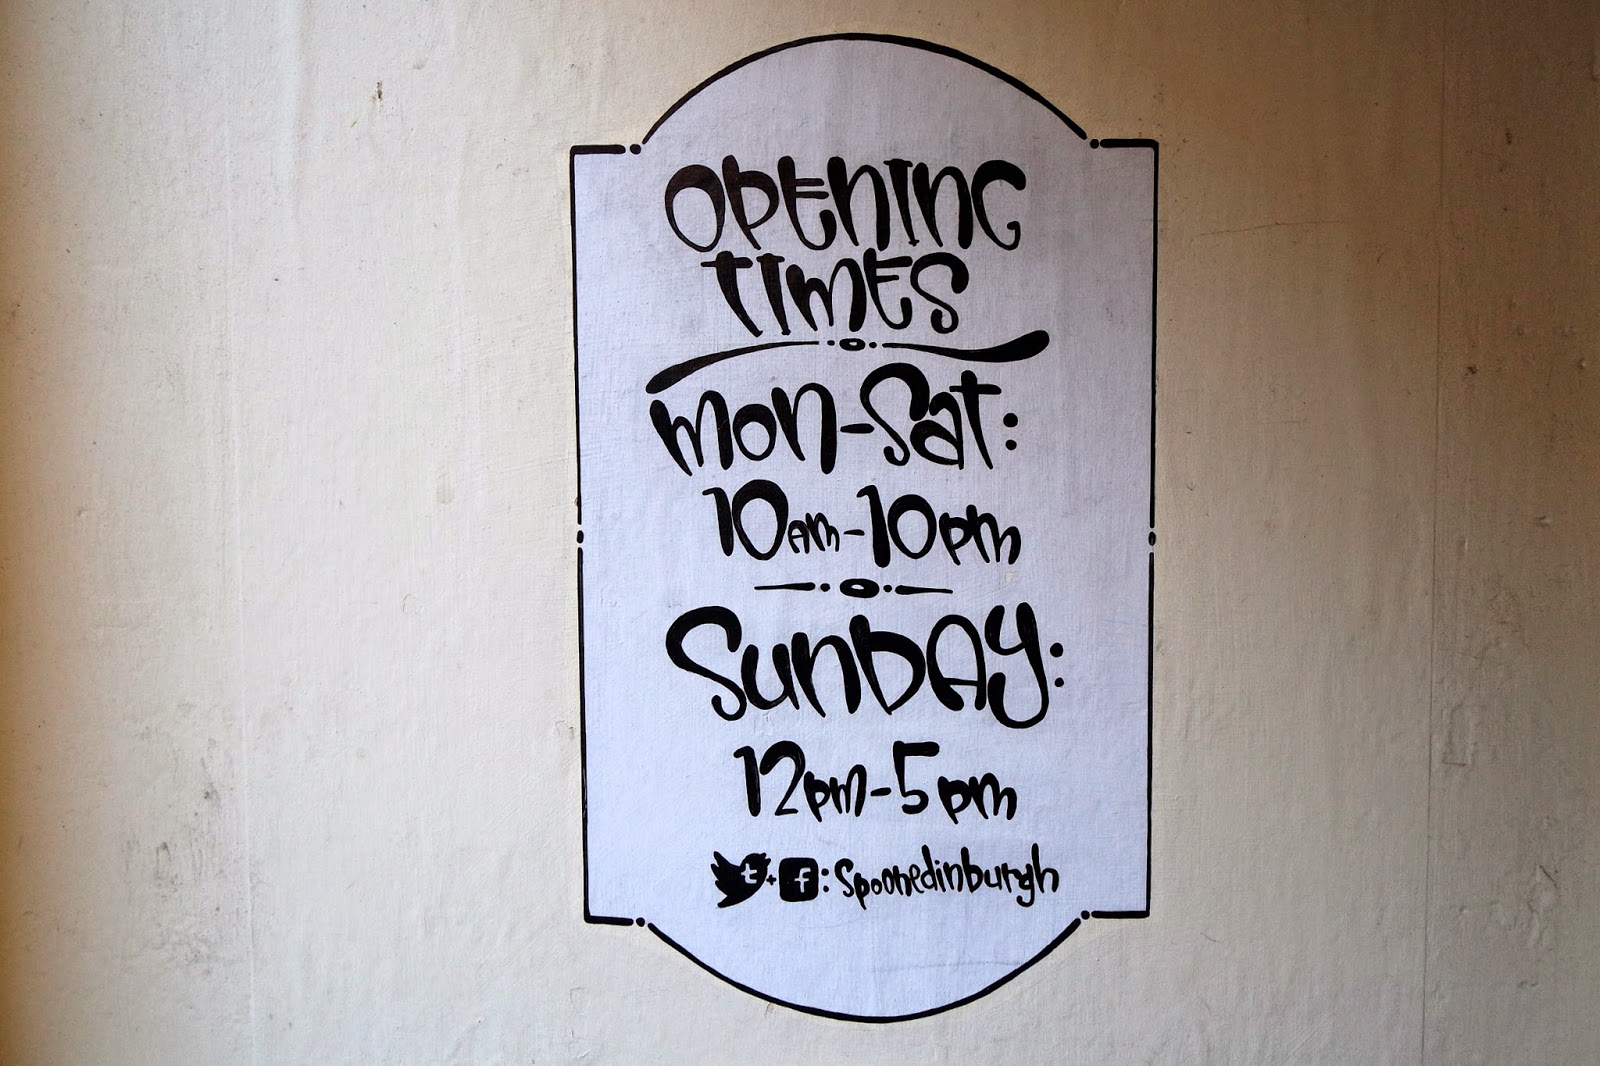 Opening
Times
Mon-Sat:
10am-10pm
Sunday:
12pm-5pm
t + f : Spoonedinburgh